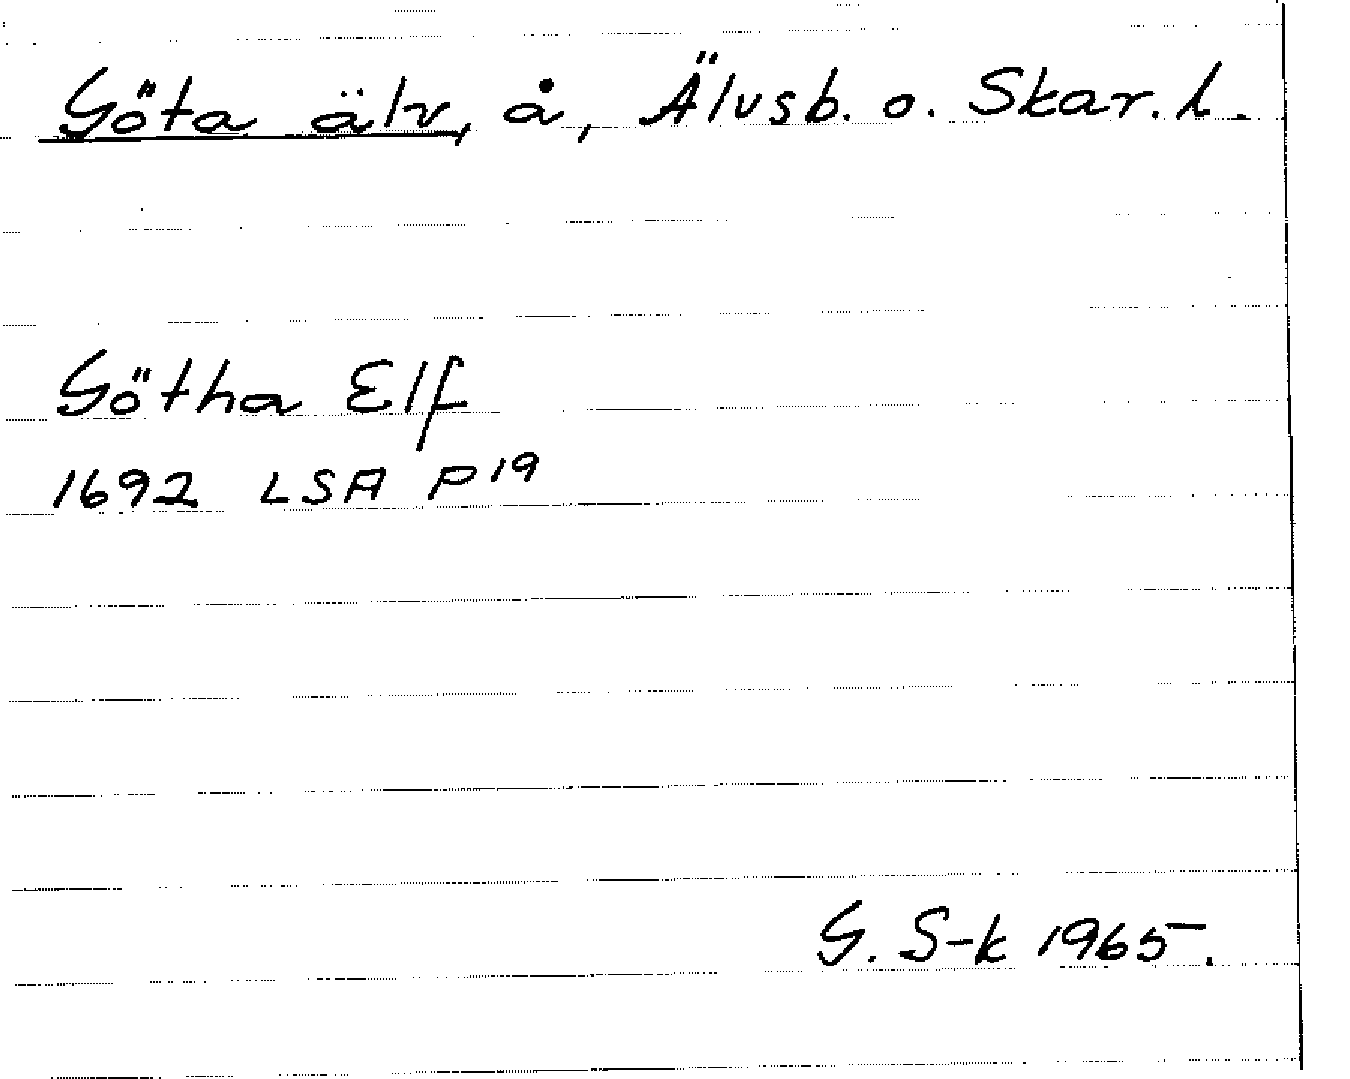 Göta älv, å, Älvsb. o. Skar. l.
Götha Elf
1692 LSA P19
G. S-k 1965.